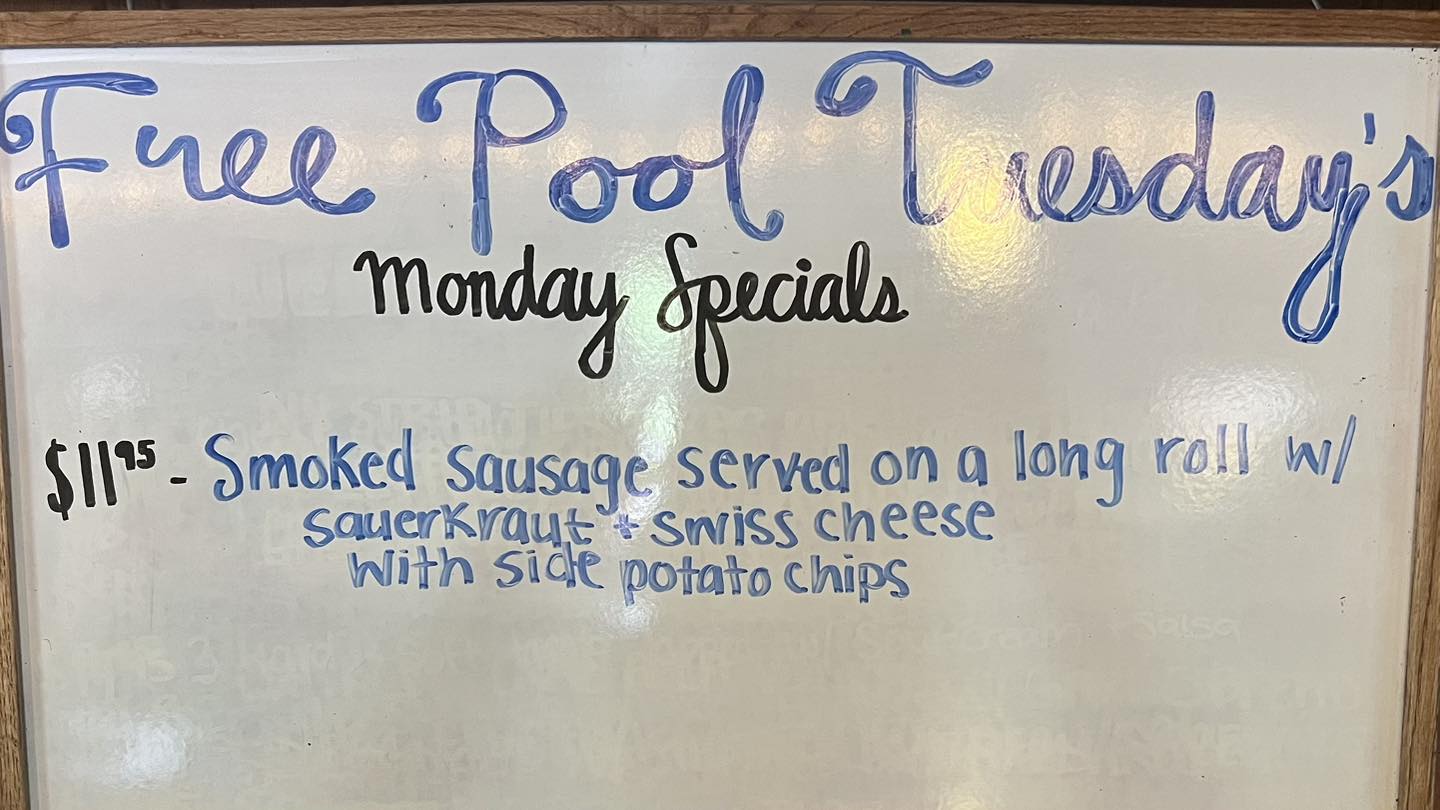 Free Pool Tuesday's
Monday Specials
$11.95 - Smoked Sausage served on a long roll w/
sauerkraut + swiss cheese
with side potato chips
2 Hard
Sour Cream
Salsa